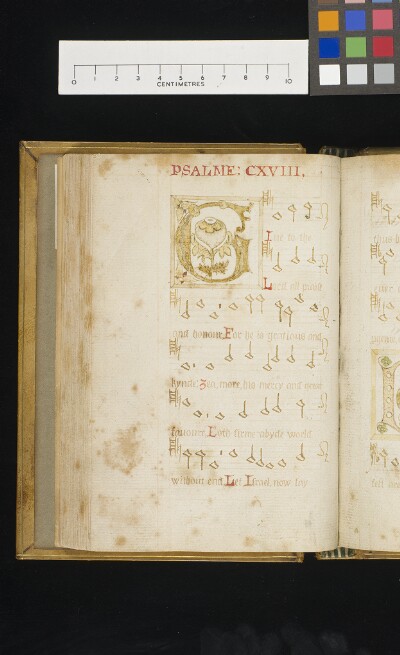 0 1 2 3 4 5 6 7 8 9 10
CENTIMETRES
PSALME: CXVIII.
G
Iue to the
Lord all praise
and honour, For he is gratious and
kynde: Yea, more, his mercy and
Lord, firme abyde world
without end Let Israel now say